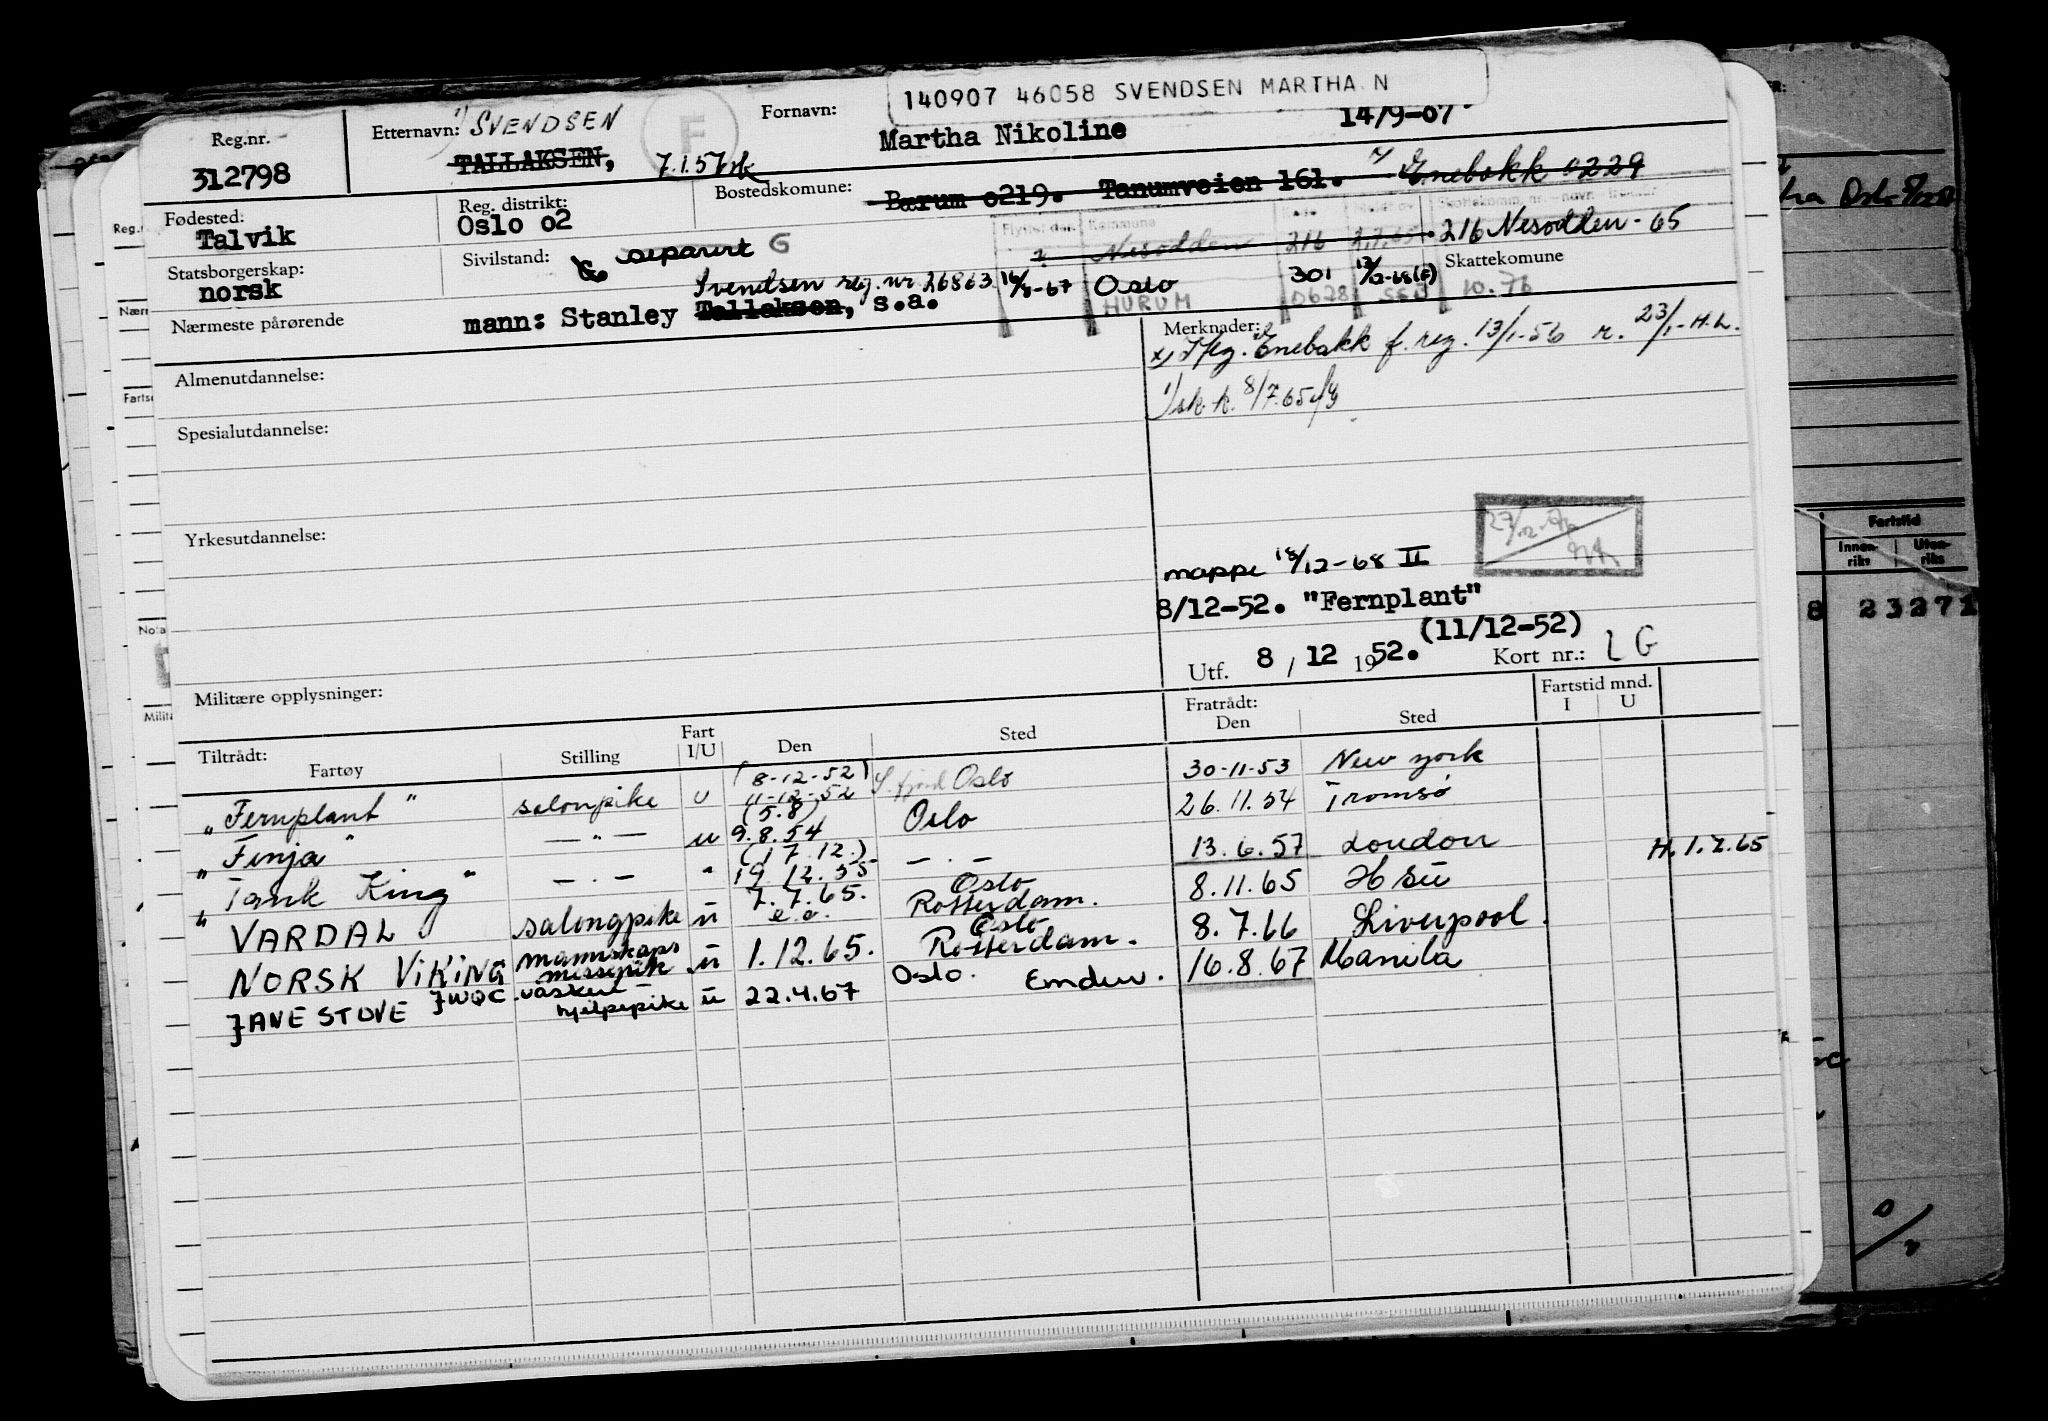 140907 46058 SVENDSEN MARTHA N
Reg.nr.
312798
Etternavn: 1) SVENDSEN
TALLAKSEN, 7.1.57
F
Fornavn:
Martha Nikoline
14/9-07
Fødested:
Talvik
Reg. distrikt:
Oslo 02
Bostedskommune:
Bærum 0219. Tanumveien 161. Enebakk 0229
Statsborgerskap:
norsk
Sivilstand:
separert G
Flyttet den Kommune
Nesodden 216 2.7.65
216 Nesodden - 65
Skattekomune
16/8-67 Oslo 301 12/12-68 (F)
HURUM 0628 10.76
Nærmeste pårørende
Svendsen reg. nr 26863
mann: Stanley Tallaksen, s.a.
Almenutdannelse:
Merknader:
x) Flg. Enebakk f. reg. 13/1-56 r. 23/1- H.L.
1) sk. k. 8/7.65
Spesialutdannelse:
Yrkesutdannelse:
27/12-76
mappe 18/12-68 II
8/12-52. "Fernplant"
(11/12-52)
Utf. 8 / 12 1952.
Kort nr.: LG
Militære opplysninger:
Tiltrådt:
Fartøy
Stilling
Fart
I/U
Den
Sted
Fratrådt:
Den
Sted
Fartstid mnd.
I U
"Fernplant" salonpike u (8-12-52) 11-12-52 S.fjord Oslo 30-11-53 New York
"Finja" — " — u (5.8) 9.8.54 Oslo 26.11.54 Tromsø
"Tank King" — . — " (17.12.) 19.12.55 — . — 13.6.57 London H.1.7.65
"VARDAL" salongpike u 7.7.65. e.o. Oslo Rotterdam. 8.11.65 H Sü
NORSK VIKING mannskaps messepike u 1.12.65. Oslo Rotterdam. 8.7.66 Liverpool.
JANE STOVE JWQC vaskeri hjelpepike u 22.4.67 Oslo. Emden. 16.8.67 Manila
Fartstid
Innen-
riks
Uten-
riks
8 23271